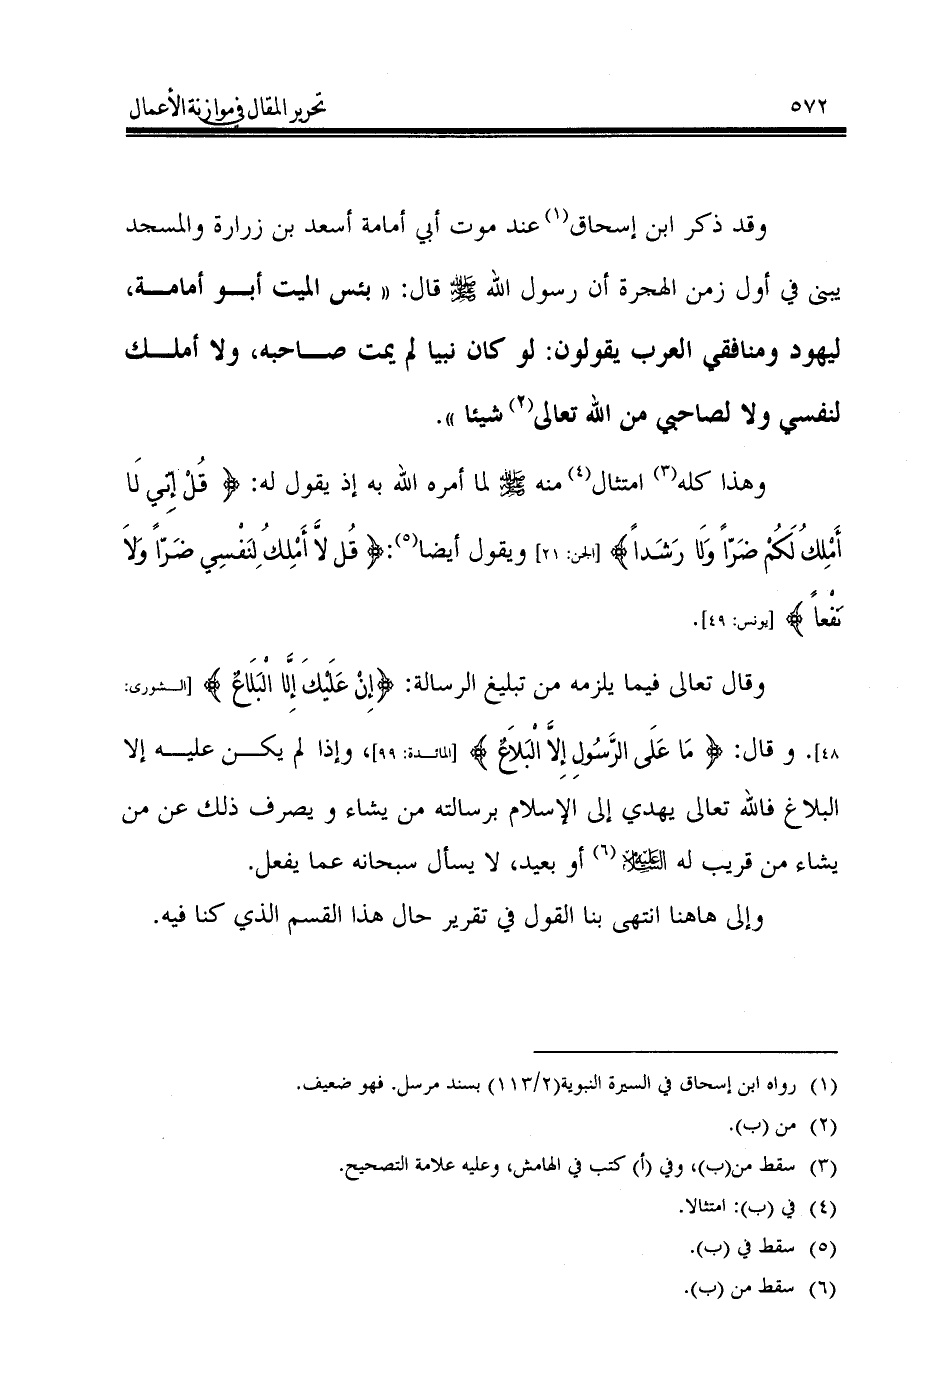 ٥٧٢ تحرير المقال في موازنة الأعمال
وقد ذكر ابن إسحاق(١) عند موت أبي أمامة أسعد بن زرارة والمسجد
يبنى في أول زمن الهجرة أن رسول الله ﷺ قال: « بئس الميت أبـــو أمامـــة،
ليهود ومنافقي العرب يقولون: لو كان نبيا لم يمت صـــاحبه، ولا أملـــك
لنفسي ولا لصاحبي من الله تعالى(٢) شيئا ».
وهذا كله(٣) امتثال(٤) منه ﷺ لما أمره الله به إذ يقول له: ﴿ قُلْ إِنِّي لَا
أَمْلِكُ لَكُمْ ضَرّاً وَلَا رَشَداً ﴾ [الجن: ٢١] ويقول أيضا(٥): ﴿ قُل لاَّ أَمْلِكُ لِنَفْسِي ضَرّاً وَلَا
نَفْعاً ﴾ [يونس: ٤٩].
وقال تعالى فيما يلزمه من تبليغ الرسالة: ﴿إِنْ عَلَيْكَ إِلَّا الْبَلَاغُ ﴾ [الـــشورى:
٤٨]. و قال: ﴿ مَا عَلَى الرَّسُولِ إِلاَّ الْبَلَاغُ ﴾ [المائـــدة: ٩٩]، وإذا لم يكـــن عليـــه إلا
البلاغ فالله تعالى يهدي إلى الإسلام برسالته من يشاء و يصرف ذلك عن من
يشاء من قريب له العَلِيْهِ السَّلَام(٦) أو بعيد، لا يسأل سبحانه عما يفعل.
وإلى هاهنا انتهى بنا القول في تقرير حال هذا القسم الذي كنا فيه.
(١) رواه ابن إسحاق في السيرة النبوية(١١٣/٢) بسند مرسل. فهو ضعيف.
(٢) من (ب).
(٣) سقط من(ب)، وفي (أ) كتب في الهامش، وعليه علامة التصحيح.
(٤) في (ب): امتثالا.
(٥) سقط في (ب).
(٦) سقط من (ب).